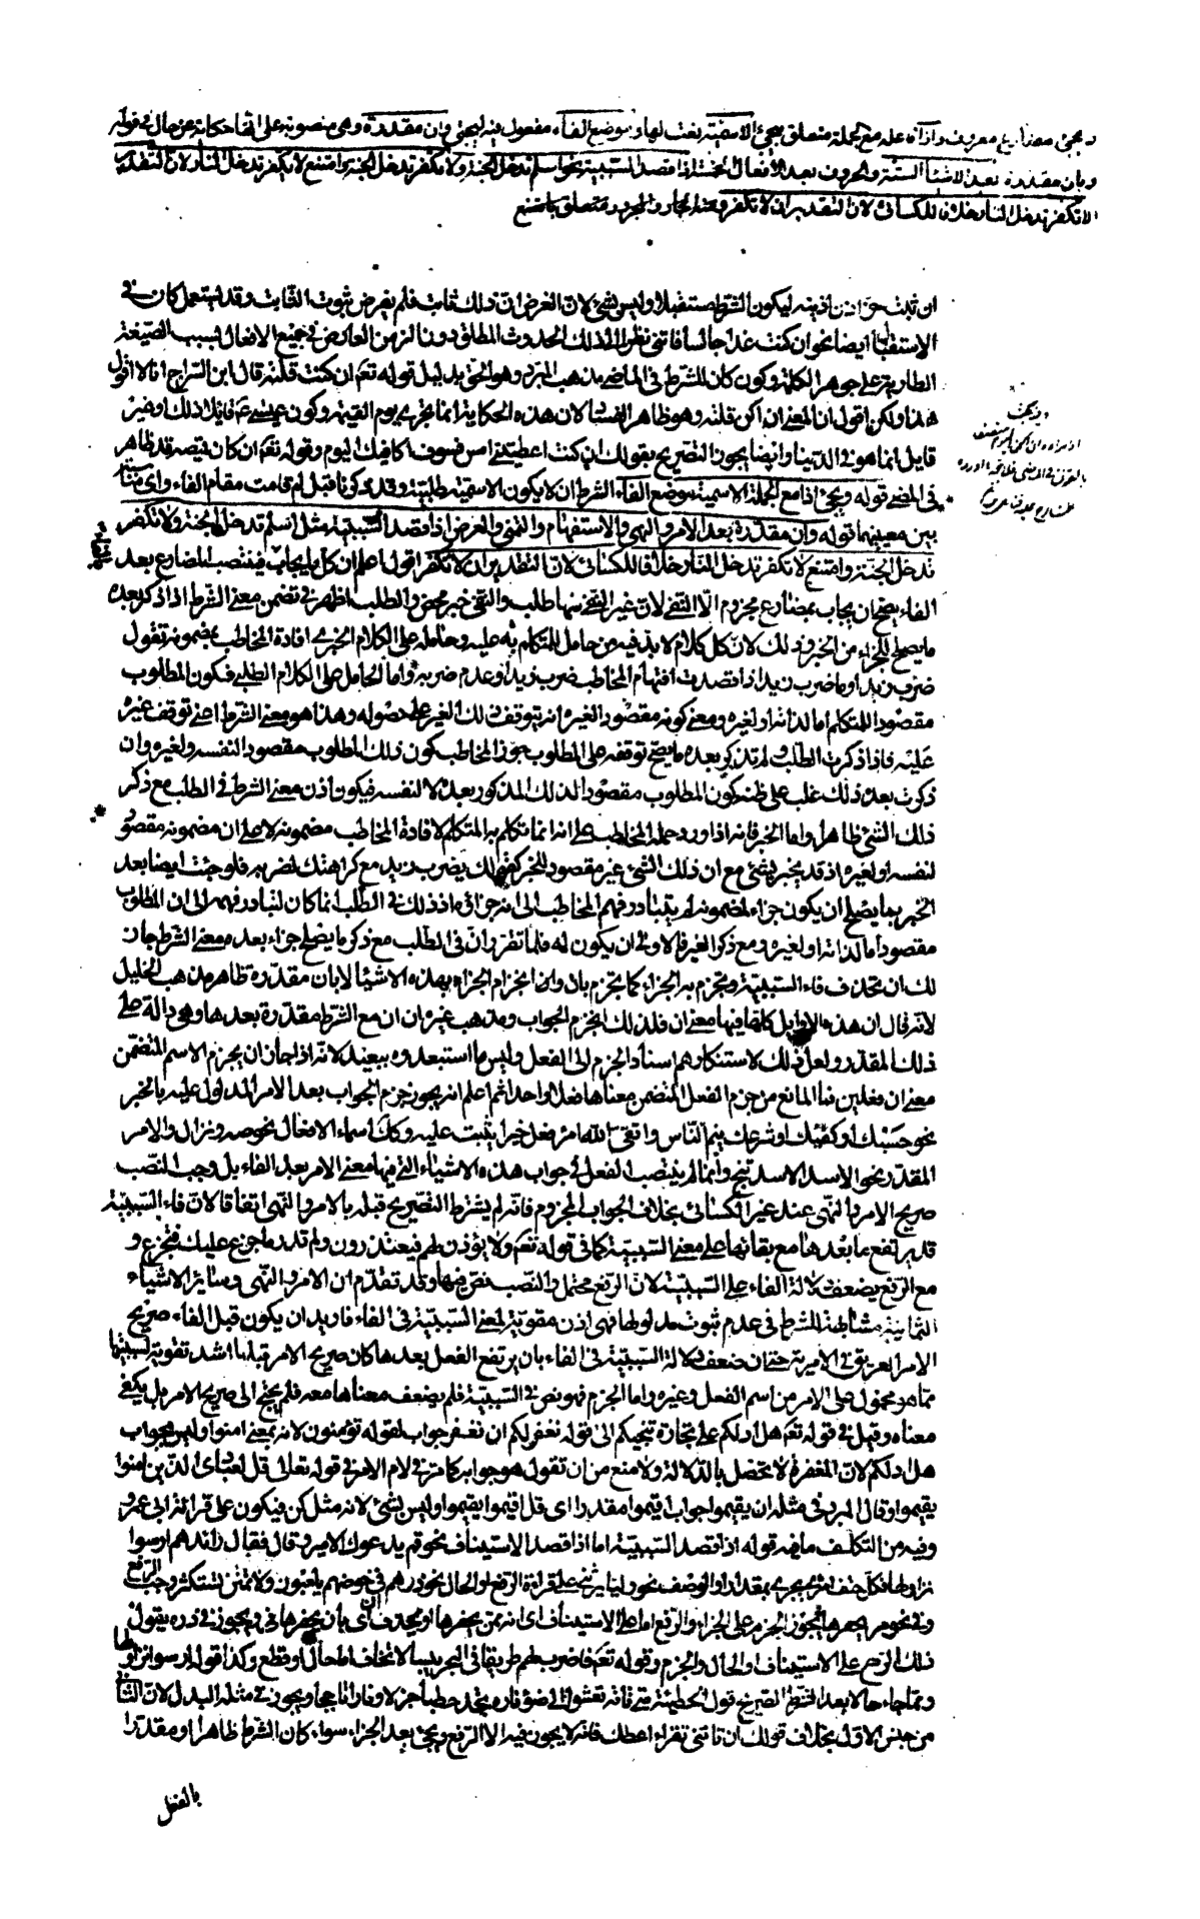 ويجئ مضارع معروف واذا مع الجملة متعلق بيجئ الاسمية نعت لها وموضع الفاء مفعول فيه ليجئ وان مقدرة وهى منصوبة على انها حكاية عن حال فى قوله
وبان مقدرة بعد الاشياء الستة والحروف بعد الافعال الخمسة اذا قصد السببية نحو اسلم تدخل الجنة ولا تكفر تدخل الجنة وامتنع لا تكفر تدخل النار لان التقدير
لا تكفر تدخل النار خلافا للكسائى لان التقدير ان لا تكفر وهذا الجار والمجرور متعلق بامتنع
ان ثبت ليكون الشرط مستقبلا وليس بشئ لان الغرض ان ذلك ثابت فلم يفرض ثبوت الثابت وقد يستعمل كان فى
الاستقبال ايضا نحو ان كنت غدا جالسا فاتنى نظرا الى ذلك الحدوث المطلق دون الزمن العارض فى جميع الافعال بسبب الصيغة
الطارية على جوهر الكلمة وكون كان للشرط فى الماضى مذهب المبرد وهو الحق بدليل قوله تعم ان كنت قلته قال ابن السراج انا لا اقول
هذا ولكن اقول ان المعنى ان اكن قلته وهو ظاهر الفساد لان هذه الحكاية انما تجرى يوم القيمة وكون عيسى ع قايلا ذلك او غير
قايل انما هو فى الدنيا وايضا يجوز التصريح بقولك ان كنت اعطيتنى امس فسوف اكافيك اليوم وقوله تعم ان كان قميصه قد ظاهر
فى المضى قوله ويجئ اذا مع الجملة الاسمية موضع الفاء الشرط ان لا يكون الاسمية طلبية وقد ذكرنا قبل لم قامت مقام الفاء واى مناسبة
بين معنييهما قوله وان مقدرة بعد الامر والنهى والاستفهام والتمنى والعرض اذا قصد السببية مثل اسلم تدخل الجنة ولا تكفر
تدخل الجنة وامتنع لا تكفر تدخل النار خلافا للكسائى لان التقدير ان لا تكفر اقول اعلم ان كل ما يجاب فينتصب المضارع بعد
الفاء يصح ان يجاب بمضارع مجزوم الا النفى لان غير النفى منها طلب والنفى خبر محض والطلب اظهر فى تضمن معنى الشرط اذا ذكر بعده
ما يصلح للجزاء من الخبر وذلك لان كل كلام لا بد فيه من حامل للمتكلم به عليه وحامله على الكلام الخبرى افادة المخاطب بمضمونه تقول
ضرب زيد او ما ضرب زيد اذا قصدت افهام المخاطب ضرب زيد او عدم ضربه واما الحامل على الكلام الطلبى فكون المطلوب
مقصودا للمتكلم اما لذاته او لغيره ومعنى كونه مقصودا لغيره انه يتوقف ذلك الغير على حصوله وهذا هو معنى الشرط اعنى توقف غيره
عليه فاذا ذكرت الطلب ولم تذكر بعده ما يصح توقفه على المطلوب جوز المخاطب كون ذلك المطلوب مقصودا لنفسه ولغيره وان
ذكرت بعده ذلك غلب على ظنه كون المطلوب مقصودا لذلك المذكور بعد لا لنفسه فيكون اذن معنى الشرط فى الطلب مع ذكر
ذلك الشئ ظاهرا واما الخبر فانه اذا ورد حمله المخاطب على انه انما تكلم به المتكلم لافادة المخاطب مضمونه لا على ان مضمونه مقصود
لنفسه او لغيره اذ قد يخبر بشئ مع ان ذلك الشئ غير مقصود للمخبر كقولك يضرب زيد مع كراهتك لضربه فلو جئت ايضا بعد
الخبر بما يصلح ان يكون جزاء لمضمونه لم يتبادر فهم المخاطب الى انه جزاؤه اذ ذلك فى الطلب انما كان لتبادر فهمه الى ان المطلوب
مقصود اما لذاته او لغيره ومع ذكر الغير فالاولى ان يكون له فلما تقرر ان فى الطلب مع ذكر ما يصلح جزاء بعد معنى الشرط جاز
لك ان تحذف فاء السببية وتجزم به الجزاء كما تجزم بان وان انجزام الجزاء بهذه الاشياء لا بان مقدرة ظاهر مذهب الخليل
لانه قال ان هذه الاوايل كلها فيها معنى ان فلذلك انجزم الجواب ومذهب غيره ان ان مع الشرط مقدرة بعدها وهى دالة على
ذلك المقدر ولعل ذلك لاستنكارهم اسناد الجزم الى الفعل وليس ما استبعدوه ببعيد لانه اذا جاز ان يجزم الاسم المتضمن
معنى ان فعلين فما المانع من جزم الفعل المتضمن معناها فعلا واحدا ثم اعلم انه يجوز جزم الجواب بعد الامر المدلول عليه بالخبر
نحو حسبك او كفيك او شرعك ينم الناس واتقى الله امرؤ فعل خيرا يثبت عليه وكذا اسماء الافعال نحو صه ونزال والامر
المقدر نحو الاسد الاسد تنج وانما لم ينتصب الفعل فى جواب هذه الاشياء التى فيها معنى الامر بعد الفاء بل وجب لنصب
صريح الامر والنهى عند غير الكسائى بخلاف الجواب المجزوم فانه لم يشترط التصريح قبله بالامر والنهى اتفاقا لان فاء السببية
قد يرتفع ما بعدها مع بقائها على معنى السببية كما فى قوله تعم ولا يؤذن لهم فيعتذرون ولم تدر ما جزع عليك فتجزع و
مع الرفع يضعف دلالة الفاء على السببية لان الرفع محتمل والنصب نص فيها وقد تقدم ان الامر والنهى وسائر الاشياء
الثمانية مشابهة للشرط فى عدم ثبوت مدلولها فهى اذن مقوية لمعنى السببية فى الفاء فاريد ان يكون قبل الفاء صريح
الامر العريق فى الامرية حتى ان ضعف دلالة السببية فى الفاء بان يرتفع الفعل بعدها كان صريح الامر قبلها اشد تقوية لسببيتها
مما هو محمول على الامر من اسم الفعل وغيره واما الجزم فهو نص فى السببية فلم يضعف معناها معه فلم يحتج الى صريح الامر بل يكفى
معناه وقيل فى قوله تعم هل ادلكم على تجارة تنجيكم الى قوله نغفر لكم ان نغفر جواب لقوله تؤمنون لانه بمعنى امنوا وليس بجواب
هل ادلكم لان المغفرة لا تحصل بالدلالة ولا منع من ان تقول هو جوابه كما مر فى لام الامر فى قوله تعالى قل لعبادى الذين امنوا
يقيموا وقال المبرد فى مثله ان يقيموا جواب اقيموا مقدرا اى قل اقيموا يقيموا وليس بشئ لانه مثل كن فيكون على قرائة ابى عمرو
وفيه من التكلف ما فيه قوله اذا قصد السببية اما اذا قصد الاستيناف نحو قم يدعوك الامير وقال فقال رائدهم ارسوا
نزاولها فكل حتف امرئ يجرى بمقدار او الوصف نحو وليا يرثنى على قراءة الرفع او الحال نحو ذرهم فى خوضهم يلعبون ولا تمنن تستكثر وجب الرفع
وفى نحو مره يحفرها يجوز الجزم على الجزاء والرفع اما على الاستيناف اى انه ممن يحفرها او بحذف ان اى بان يحفرها ويجوز فى ذره يقول
ذلك الرفع على الاستيناف او الحال والجزم وقوله تعم فاضرب لهم طريقا فى البحر يبسا لا تخاف اما حال او قطع وكذا قوله ارسوا نزاولها
ومما جاء حالا بعد الشرط الصريح قول الحطيئة متى تاته تعشو الى ضوء ناره تجد حطبا جزلا ونارا تاججا ويجوز فى مثله البدل لان الثانى
من جنس الاول بخلاف قولك ان تاتنى تقراء اعطك فانه لا يجوز فيه الا الرفع ويجئ بعد الجزاء سواء كان الشرط ظاهرا او مقدرا
بالفعل